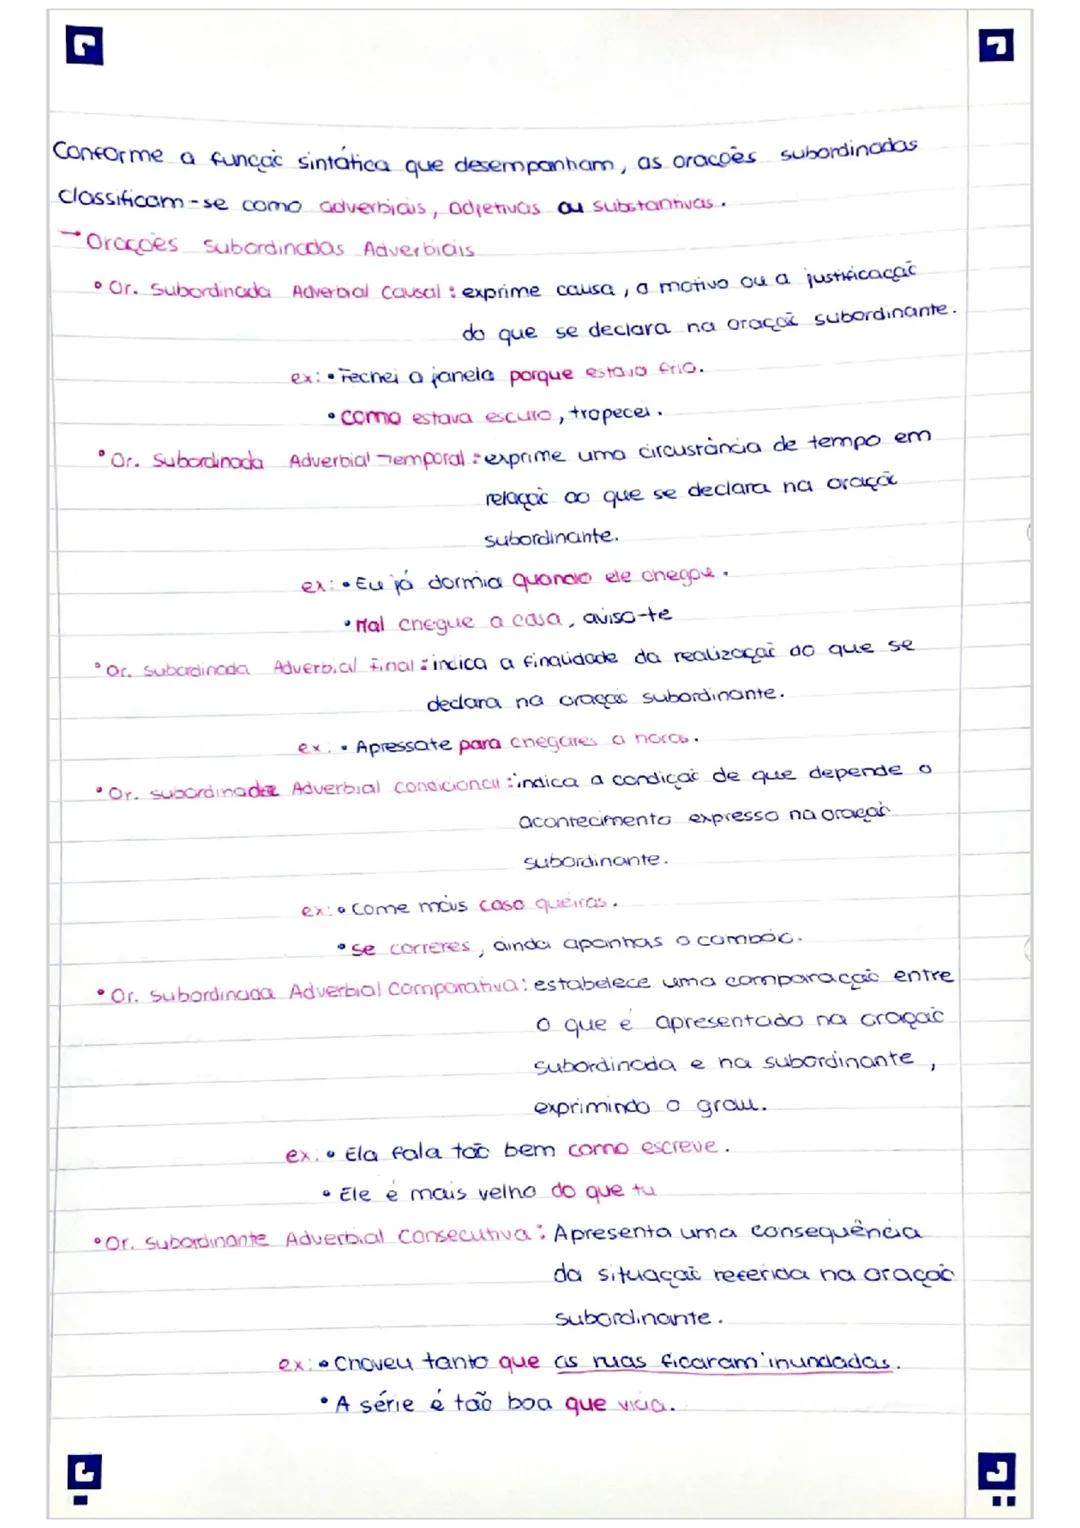 Conforme a função sintática que desempanham, as orações subordinadas
classificam-se como adverbiais, adjetivas ou substantivas.
→ Orações Subordinadas Adverbiais
• Or. Subordinada Adverbial Causal: exprime causa, o motivo ou a justificação
do que se declara na oração subordinante.
ex: • Fechei a janela porque estava frio.
• Como estava escuro, tropecei.
• Or. Subordinada Adverbial Temporal: exprime uma circustância de tempo em
relação ao que se declara na oração
subordinante.
ex: • Eu já dormia quando ele chegou.
• Mal chegue a casa, aviso-te
• Or. Subordinada Adverbial Final: indica a finalidade da realização do que se
declara na oração subordinante.
ex: • Apressate para chegares a horas.
• Or. subordinada Adverbial condicional: indica a condição de que depende o
acontecimento expresso na oração
subordinante.
ex: • Come mais caso queiras.
• Se correres, ainda apanhas o comboio.
• Or. Subordinada Adverbial Comparativa: estabelece uma comparação entre
o que é apresentado na oração
subordinada e na subordinante,
exprimindo o grau.
ex: • Ela fala tão bem como escreve.
• Ele é mais velho do que tu
• Or. Subordinante Adverbial Consecutiva: Apresenta uma consequência
da situação referida na oração
subordinante.
ex: • Choveu tanto que as ruas ficaram inundadas.
• A série é tão boa que vicia.